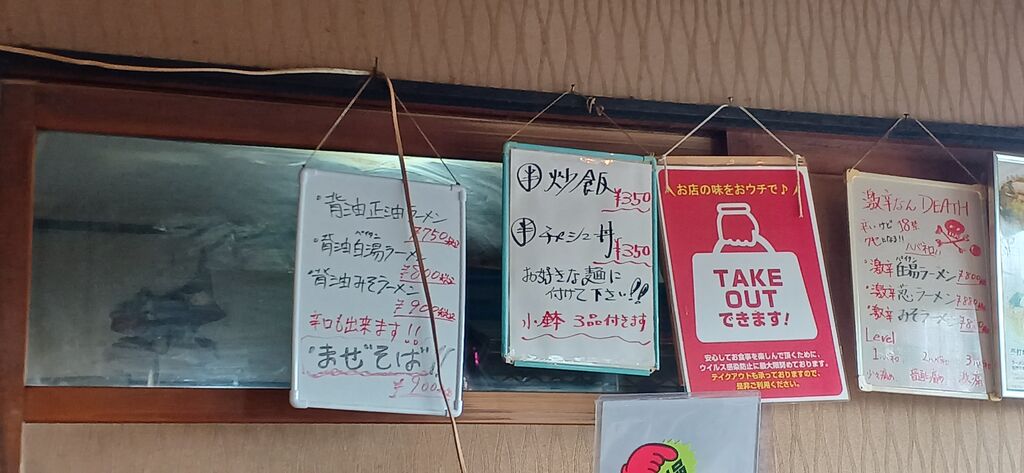 背油正油ラーメン
¥750税込
背油白湯ラーメン
パイタン
¥800税込
背油みそラーメン
¥900税込
辛口も出来ます!!
"まぜそば"!!
¥900
半 炒飯
¥350
半 チャーシュー丼
¥350
お好きな麺に
付けて下さい!!
小鉢 3品付きます
お店の味をおウチで♪
TAKE
OUT
できます!
安心してお食事を楽しんで頂くために、
ウイルス感染防止に最大限努めております。
テイクアウトも承っておりますので、
是非ご利用ください。
激辛なん DEATH
激辛白湯ラーメン
パイタン
激辛
ラーメン
激辛みそラーメン
Level
1
2
3